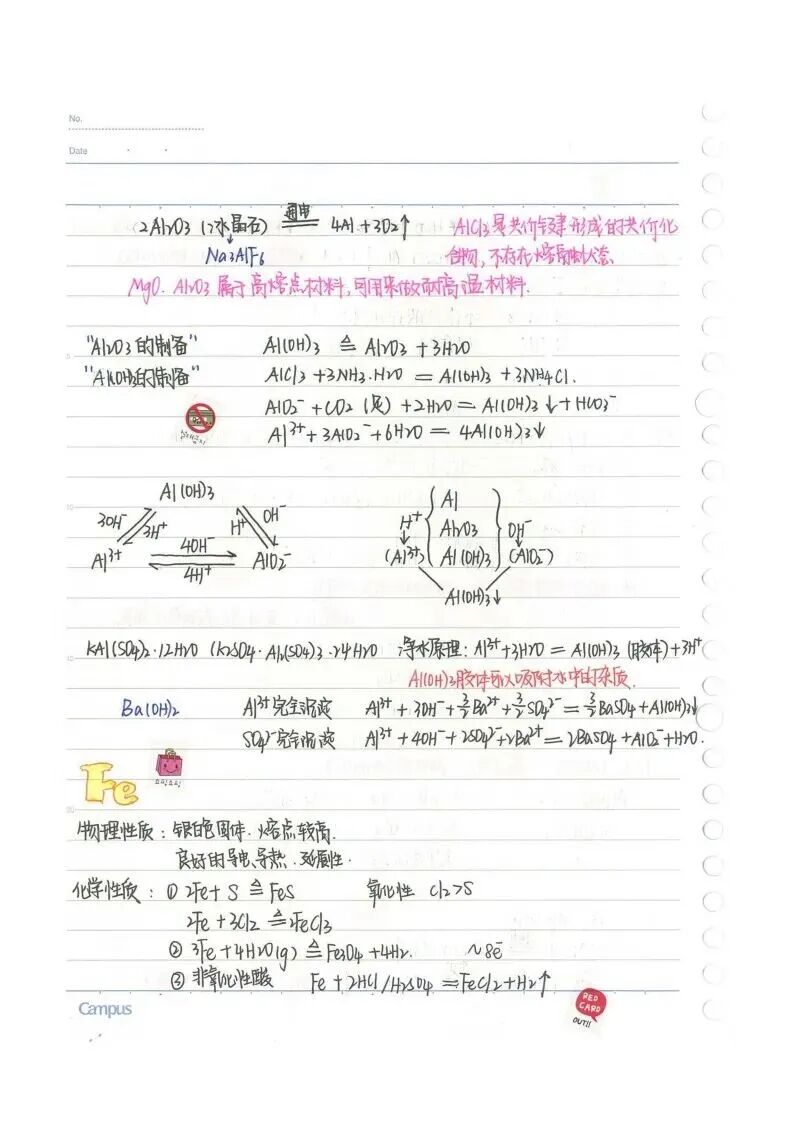 No.
Date
2Al2O3 (冰晶石) 通电 ══ 4Al + 3O2↑
Na3AlF6
AlCl3是共价键形成的共价化
合物，不存在熔融状态
MgO. Al2O3 属于高熔点材料，可用来做耐高温材料.
"Al2O3的制备" Al(OH)3 ≜ Al2O3 + 3H2O
"Al(OH)3的制备" AlCl3 + 3NH3·H2O = Al(OH)3 + 3NH4Cl.
AlO2⁻ + CO2 (足) + 2H2O = Al(OH)3↓ + HCO3⁻
Al³⁺ + 3AlO2⁻ + 6H2O = 4Al(OH)3↓
Al(OH)3
3OH⁻ 3H⁺ H⁺ OH⁻
Al³⁺ 4OH⁻ 4H⁺ AlO2⁻
Al
H⁺ Al2O3 OH⁻
(Al³⁺) Al(OH)3 (AlO2⁻)
Al(OH)3↓
KAl(SO4)2·12H2O (K2SO4·Al2(SO4)3·24H2O 净水原理: Al³⁺+3H2O = Al(OH)3 (胶体)+3H⁺
Al(OH)3胶体可以吸附水中的杂质.
Ba(OH)2 Al³⁺完全沉淀 Al³⁺ + 3OH⁻ + 3/2Ba²⁺ + 3/2SO4²⁻ = 3/2BaSO4 + Al(OH)3↓
SO4²⁻完全沉淀 Al³⁺ + 4OH⁻ + 2SO4²⁻ + 2Ba²⁺ = 2BaSO4 + AlO2⁻ + H2O.
Fe
物理性质: 银白色固体. 熔点较高.
良好的导电、导热. 延展性.
化学性质: ① 2Fe + S ≜ FeS 氧化性 Cl2>S
2Fe + 3Cl2 ≜ 2FeCl3
② 3Fe + 4H2O(g) ≜ Fe3O4 + 4H2. ~8e⁻
③ 非氧化性酸 Fe + 2HCl/H2SO4 = FeCl2 + H2↑
Campus
RED
CARD
OUT!!